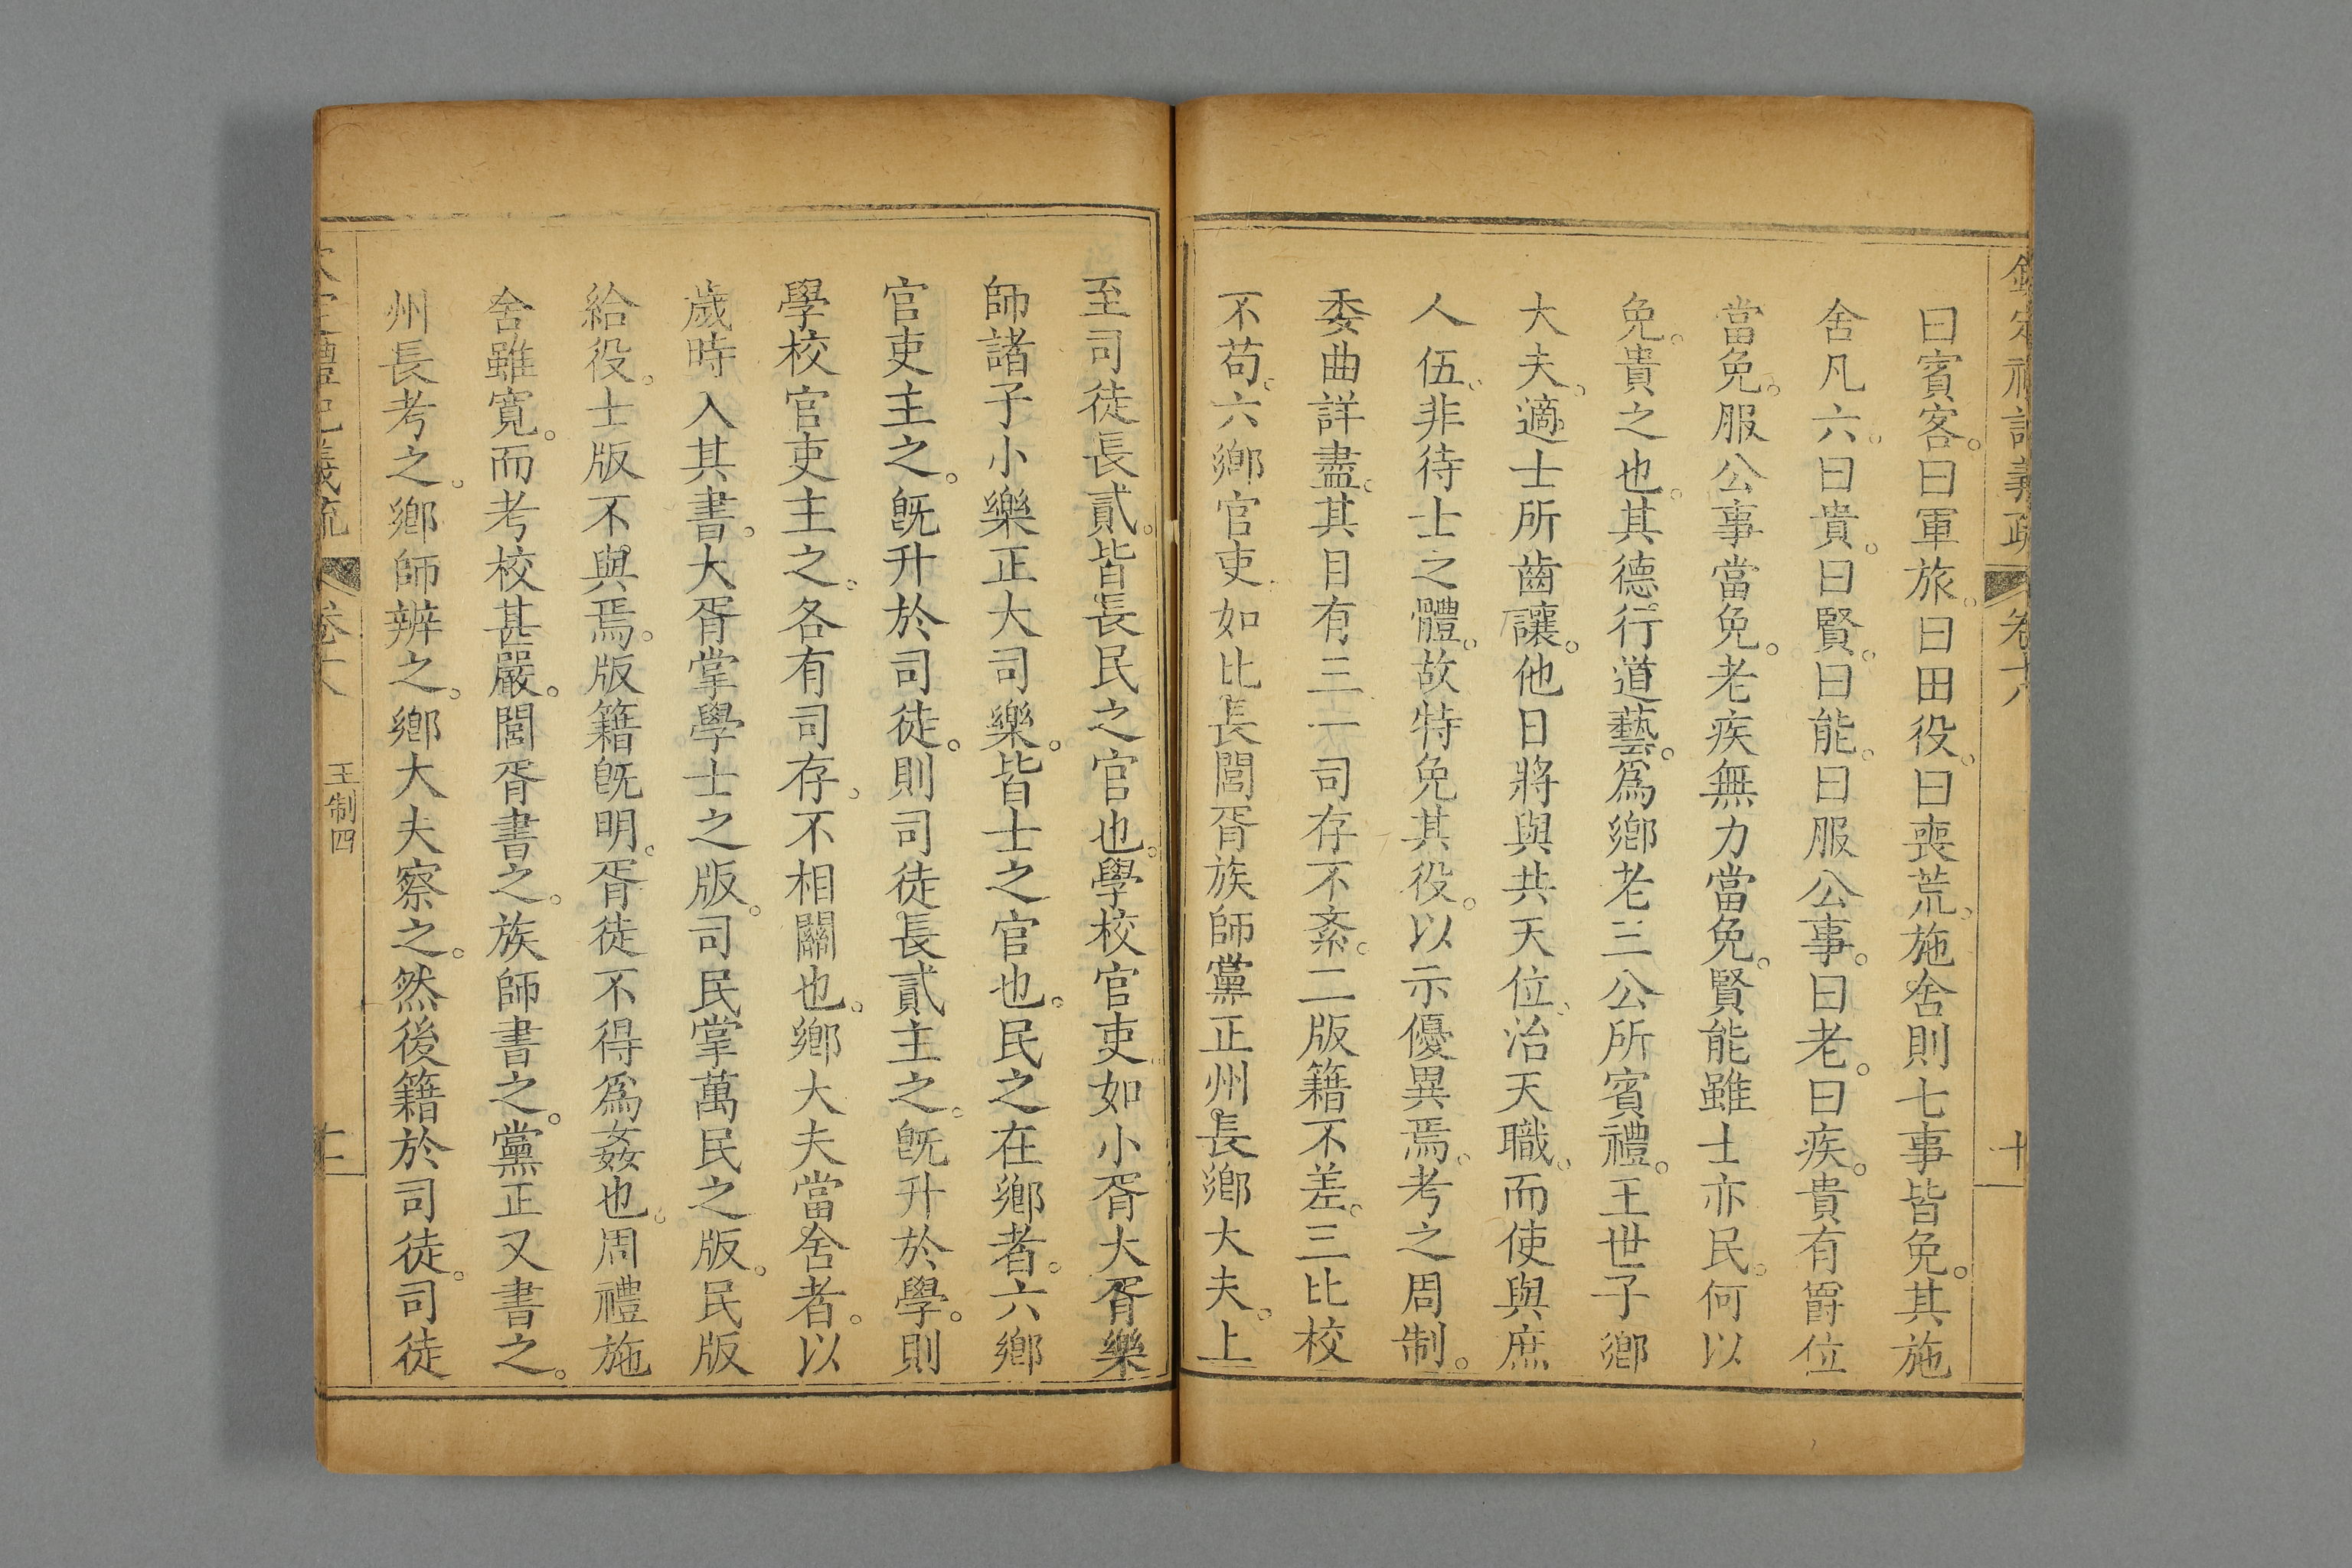 曰賓客。曰軍旅。曰田役。曰喪荒。施舍則七事皆免。其施
舍凡六。曰貴。曰賢。曰能。曰服公事。曰老。曰疾。貴有爵位
當免。服公事當免。老疾無力當免。賢能雖士亦民。何以
免。貴之也。其德行道藝。爲鄉老三公所賓禮。王世子鄉
大夫。適士所齒讓。他日將與共天位。治天職。而使與庶
人伍。非待士之體。故特免其役。以示優異焉。考之周制。
委曲詳盡。其目有三。一司存不紊。二版籍不差。三比校
不苟。六鄉官吏。如比長閭胥族師黨正州長鄉大夫。上
至司徒長貳。皆長民之官也。學校官吏。如小胥大胥樂
師諸子小樂正大司樂。皆士之官也。民之在鄉者。六鄉
官吏主之。旣升於司徒。則司徒長貳主之。旣升於學。則
學校官吏主之。各有司存。不相關也。鄉大夫當舍者。以
歲時入其書。大胥掌學士之版。司民掌萬民之版。民版
給役。士版不與焉。版籍旣明。胥徒不得爲姦也。周禮施
舍雖寬。而考校甚嚴。閭胥書之。族師書之。黨正又書之。
州長考之。鄉師辨之。鄉大夫察之。然後籍於司徒。司徒
王制四